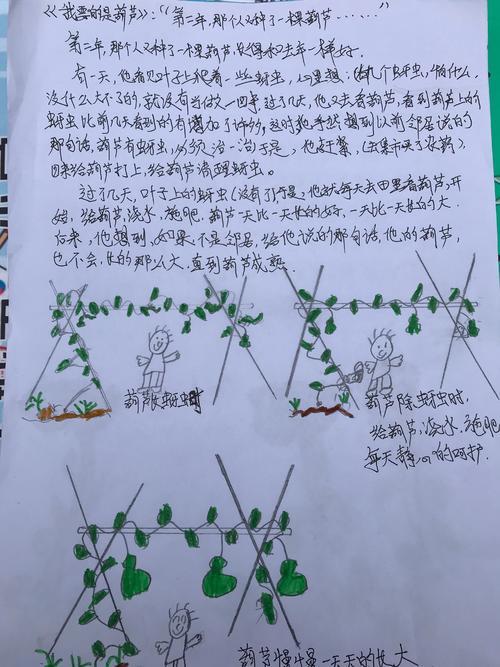 《我要的是葫芦》:“第二年,那个人又种了一棵葫芦......”
第二年,那个人又种了一棵葫芦,长得和去年一样好.
有一天,他看见叶子上爬着一些蚜虫,心里想:有几个蚜虫,怕什么,
没什么大不了的,就没有当做一回事.过了几天,他又去看葫芦,看到葫芦上的
蚜虫比前几天看到的有增加了许多,这时他突然想到以前邻居说的
那句话,葫芦有蚜虫,必须治一治于是,他赶紧,(去集市买了农药)
回来给葫芦打上,给葫芦清理蚜虫。
过了几天,叶子上的蚜虫(没有了)于是,他就每天去田里看葫芦,开
始,给葫芦,浇水,施肥,葫芦一天比一天长的好,一天比一天长的大.
后来,他想到,如果,不是邻居,给他说的那句话,他的葫芦,
也不会,长的那么大,直到葫芦成熟.
葫芦长蚜虫时
葫芦除蚜虫时,
给葫芦,浇水,施肥
每天静心的呵护.
葫芦慢慢一天天的长大